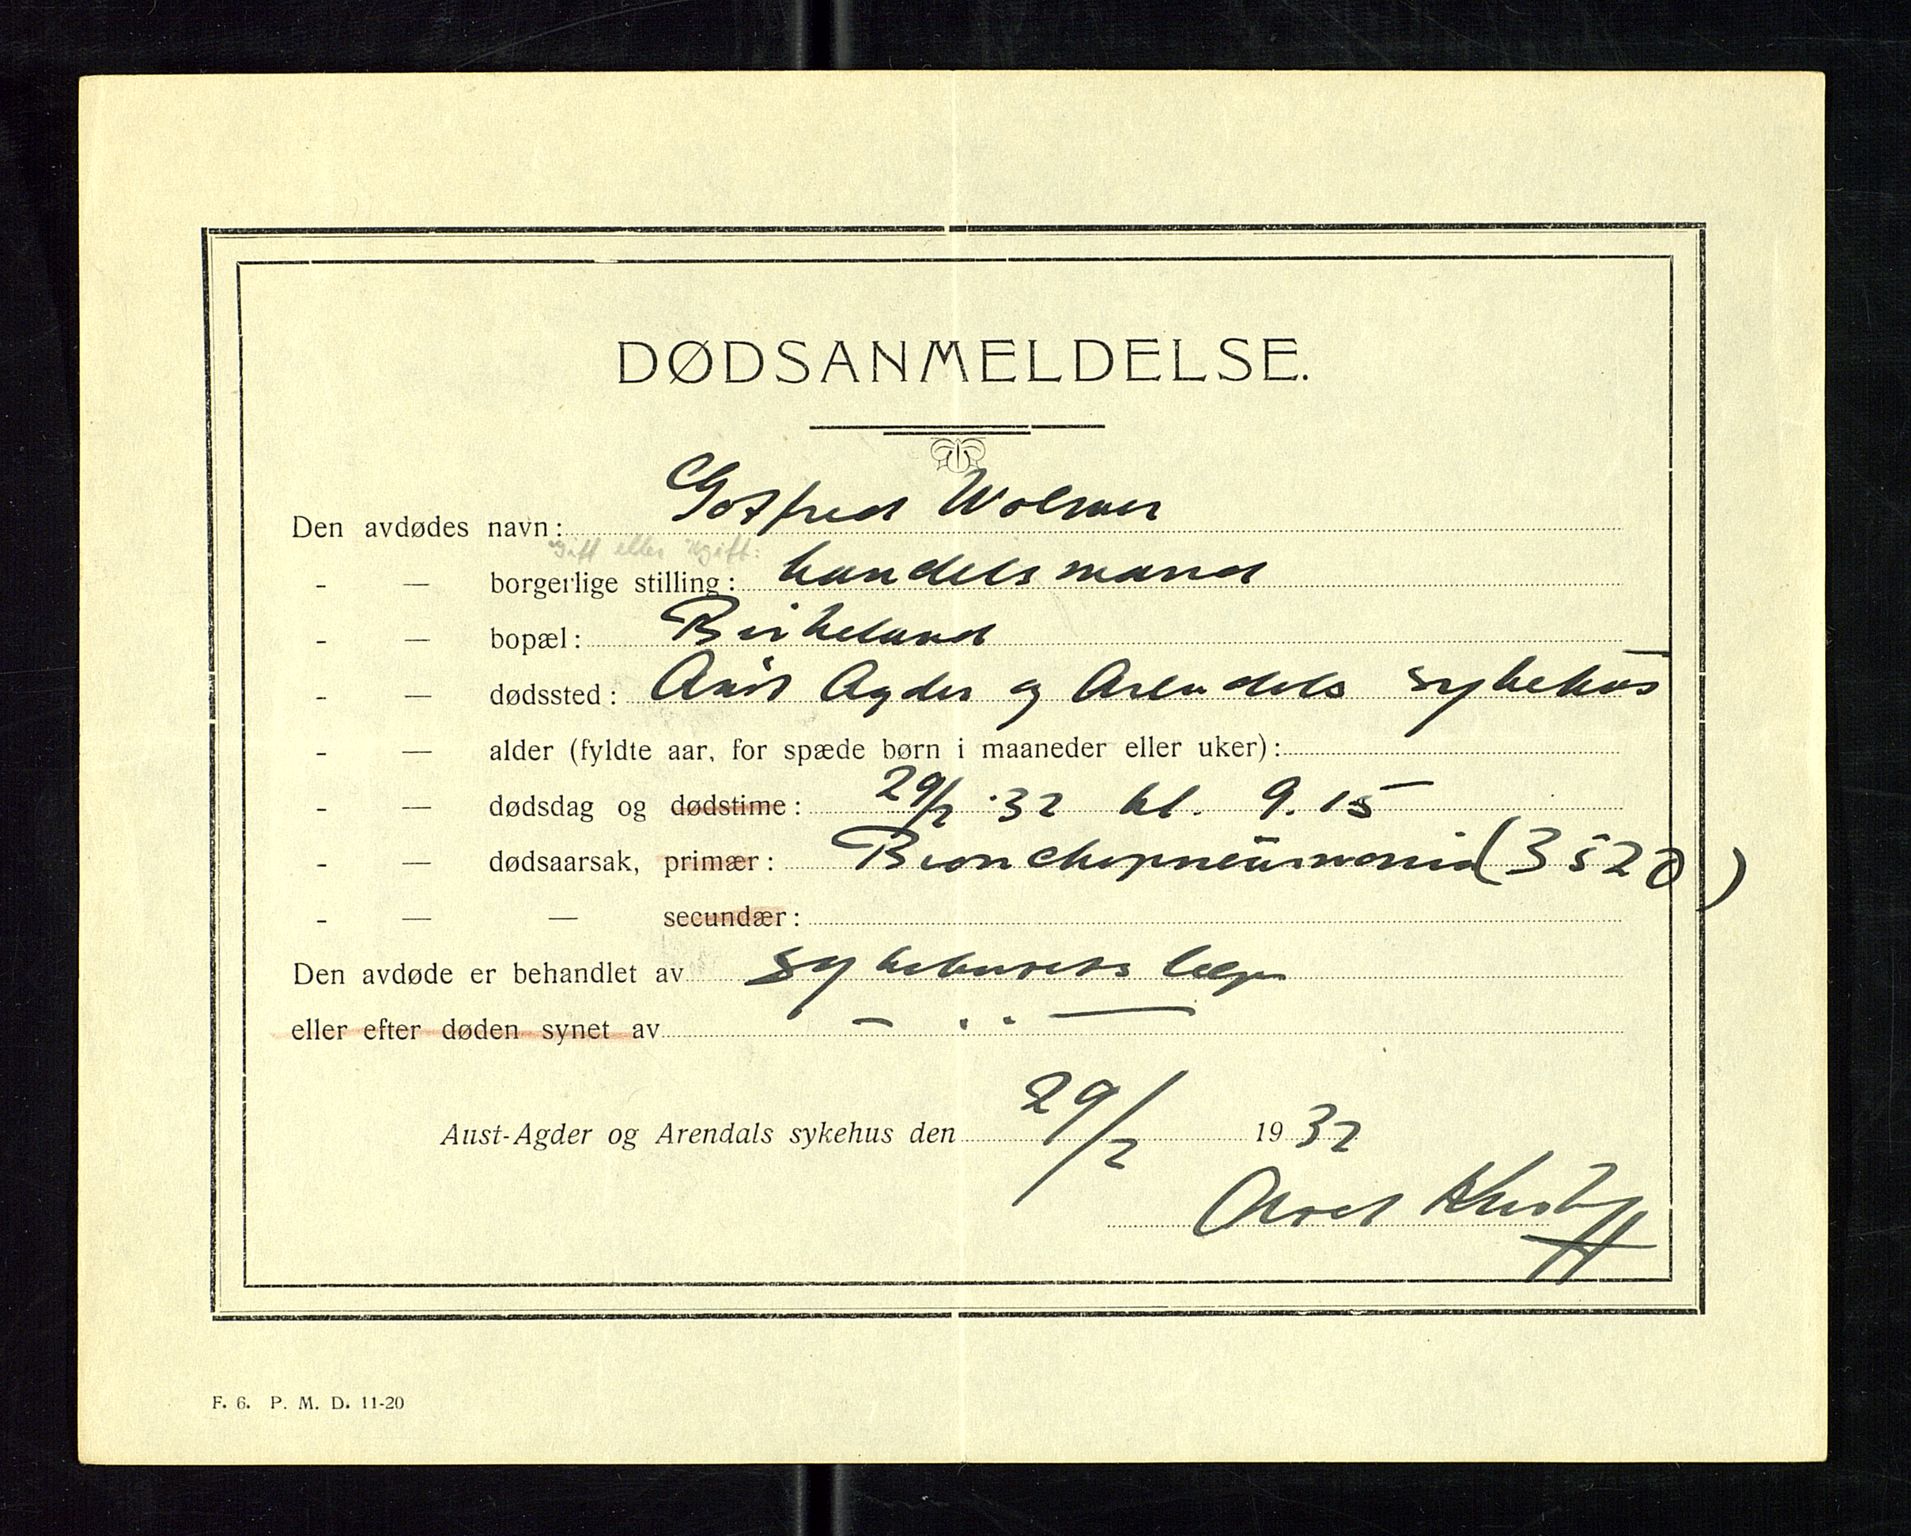 DØDSANMELDELSE.
Den avdødes navn: Gotfred Wolmer
Gift eller Ugift:
- — borgerlige stilling: handelsmand
- — bopæl: Birkeland
- — dødssted: Aust Agder og Arendals sykehus
- — alder (fyldte aar, for spæde børn i maaneder eller uker):
- — dødsdag og dødstime: 29/2 32 kl. 9.15
- — dødsaarsak, primær: Bronchopneumonia (3520)
- — — secundær:
Den avdøde er behandlet av sykehusets læge
eller efter døden synet av — . . —
Aust-Agder og Arendals sykehus den 29/2 1932
F. 6. P. M. D. 11-20